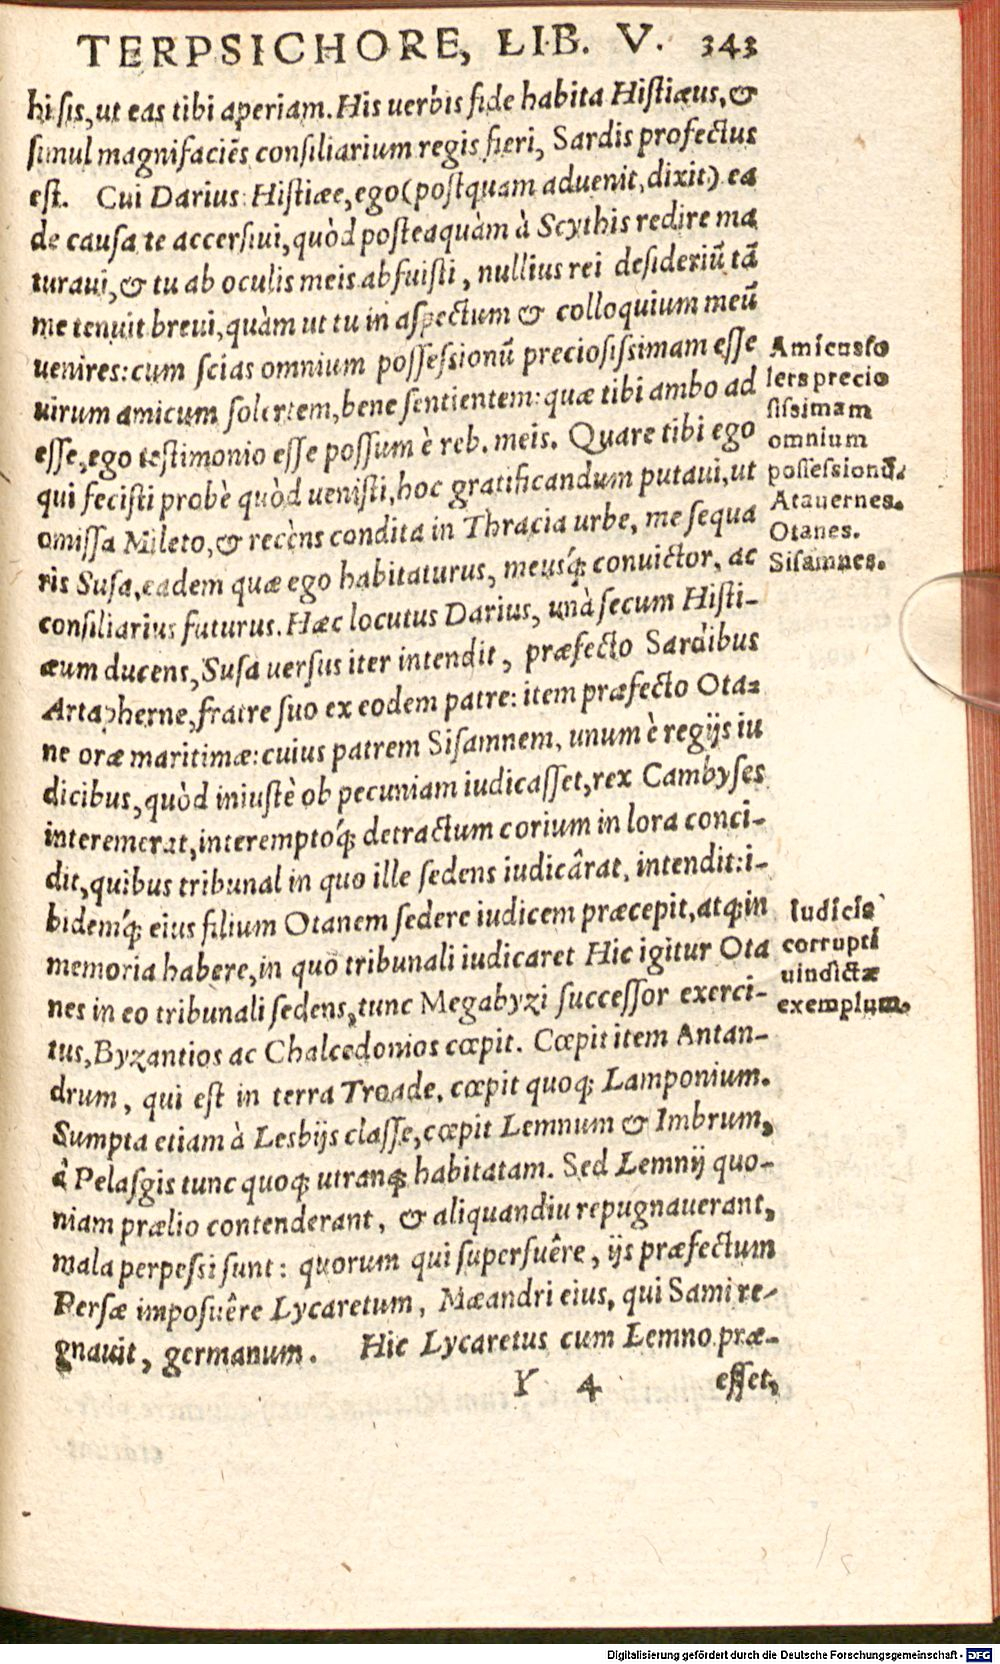 TERPSICHORE, LIB. V. 343
hi sis, ut eas tibi aperiam. His uerbis fide habita Histiæus, &
simul magnifaciẽs consiliarium regis fieri, Sardis profectus
est. Cui Darius: Histiæe, ego (postquam aduenit, dixit) ea
de causa te accersiui, quòd posteaquàm à Scythis redire ma
turaui, & tu ab oculis meis abfuisti, nullius rei desideriũ tã
me tenuit breui, quàm ut tu in aspectum & colloquium meũ
uenires: cum scias omnium possessionũ preciosissimam esse
uirum amicum solertem, bene sentientem: quæ tibi ambo ad
esse, ego testimonio esse possum è reb. meis. Quare tibi ego
qui fecisti probè quòd uenisti, hoc gratificandum putaui, ut
omissa Mileto, & recèns condita in Thracia urbe, me sequa
ris Susa, eadem quæ ego habitaturus, meusq́; conuictor, ac
consiliarius futurus. Hæc locutus Darius, unà secum Histi-
æum ducens, Susa uersus iter intendit, præfecto Sardibus
Artapherne, fratre suo ex eodem patre: item præfecto Ota-
ne oræ maritimæ: cuius patrem Sisamnem, unum è regijs iu
dicibus, quòd iniustè ob pecuniam iudicasset, rex Cambyses
interemerat, interemptoq́; detractum corium in lora conci-
dit, quibus tribunal in quo ille sedens iudicârat, intendit: i-
bidemq́; eius filium Otanem sedere iudicem præcepit, atq; in
memoria habere, in quo tribunali iudicaret Hic igitur Ota
nes in eo tribunali sedens, tunc Megabyzi successor exerci-
tus, Byzantios ac Chalcedonios cœpit. Cœpit item Antan-
drum, qui est in terra Troade, cœpit quoq; Lamponium.
Sumpta etiam à Lesbijs classe, cœpit Lemnum & Imbrum,
à Pelasgis tunc quoq; utranq; habitatam. Sed Lemnij quo-
niam prælio contenderant, & aliquandiu repugnauerant,
mala perpessi sunt: quorum qui superfuêre, ijs præfectum
Persæ imposuêre Lycaretum, Mæandri eius, qui Sami re-
gnauit, germanum. Hic Lycaretus cum Lemno præ-
Y 4 esset,
Amicus so
lers precio
sissimam
omnium
possessionũ.
Atauernes.
Otanes.
Sisamnes.
Iudicis
corrupti
uindictæ
exemplum.
Digitalisierung gefördert durch die Deutsche Forschungsgemeinschaft - DFG